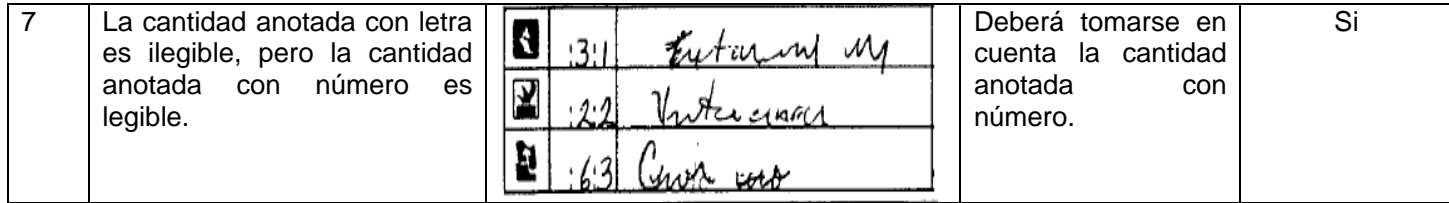 7
La cantidad anotada con letra
es ilegible, pero la cantidad
anotada con número es
legible.
:3:1
:2:2
:6:3
Deberá tomarse en
cuenta la cantidad
anotada con
número.
Si